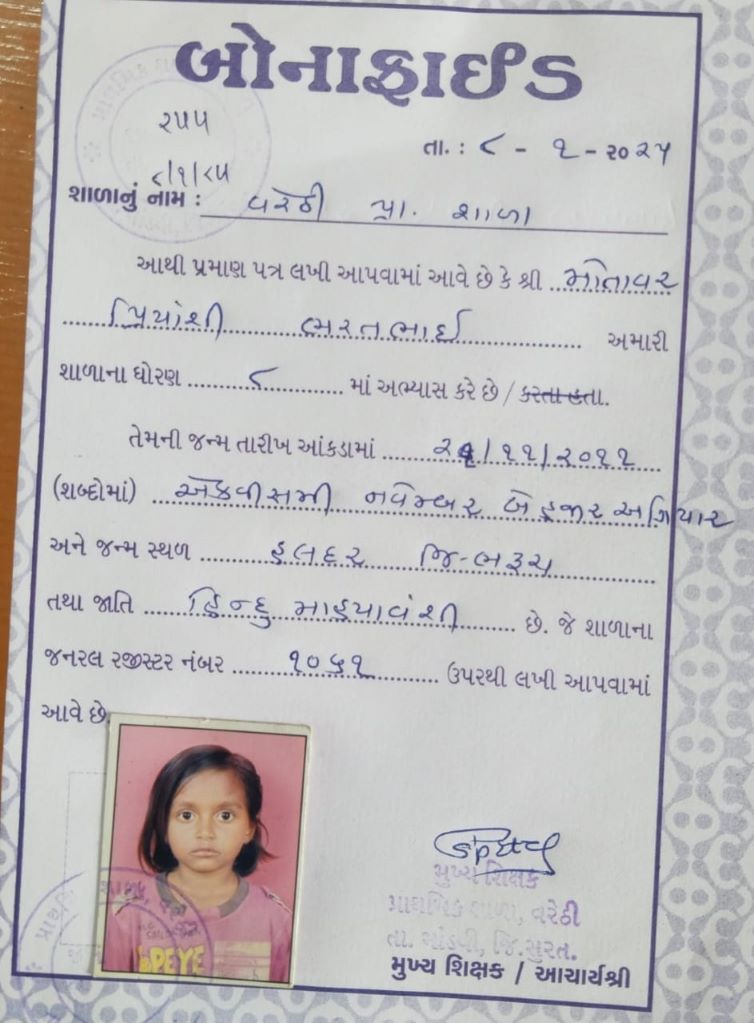 બોનાફાઈડ
૨૫૫
તા. : ૮ - ૧ - ૨૦૨૫
૮/૧/૨૫
શાળાનું નામ : વરેઠી પ્રા. શાળા
આથી પ્રમાણ પત્ર લખી આપવામાં આવે છે કે શ્રી મોતાવર
પ્રિયાંશી ભરતભાઈ અમારી
શાળાના ધોરણ ૮ માં અભ્યાસ કરે છે / કરતા હતા.
તેમની જન્મ તારીખ આંકડામાં ૨૧/૧૧/૨૦૧૧
(શબ્દોમાં) એકવીસમી નવેમ્બર બેહજાર અગિયાર
અને જન્મ સ્થળ હલદર જિ-ભરૂચ
તથા જાતિ હિન્દુ માહ્યાવંશી છે. જે શાળાના
જનરલ રજીસ્ટર નંબર ૧૦૬૧ ઉપરથી લખી આપવામાં
આવે છે.
મુખ્ય શિક્ષક
પ્રાથમિક શાળા, વરેઠી
તા. માંડવી, જિ.સુરત.
મુખ્ય શિક્ષક / આચાર્યશ્રી